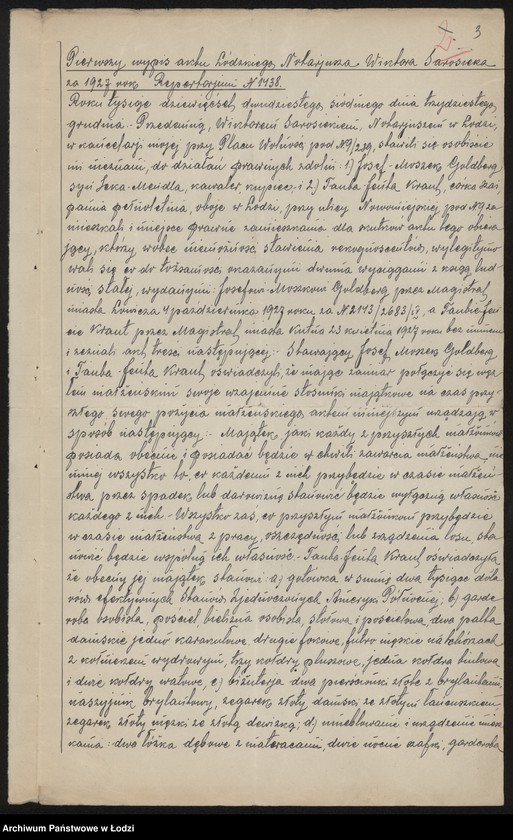 3
Pierwszy wypis aktu Łódzkiego Notarjusza Wiktora Sarosieka
za 1927 rok Repertorjum № 1438.
Roku tysiąc dziewięćset dwudziestego siódmego dnia trzydziestego
grudnia. Przedemną, Wiktorem Sarosiekiem, Notarjuszem w Łodzi,
w kancelarji mojej przy Placu Wolności pod № 9/239, stawili się osobiście
mi nieznani, do działań prawnych zdolni: 1) Josef-Moszek Goldberg
syn Icka-Mendla, kawaler, kupiec i 2) Tauba-Jenta Kraut, córka
panna pełnoletnia, oboje w Łodzi, przy ulicy Nowomiejskiej pod № za-
mieszkali i miejsce prawne zamieszkania dla skutków aktu tego obiera-
jący, którzy wobec niemożności stawienia rekognoscentów, wylegitymo-
wali się co do tożsamości okazanymi dwoma wyciągami z ksiąg lud-
ności stałej, wydanymi: Josefowi-Moszkowi Goldberg przez Magistrat
miasta Łowicza 4 października 1927 roku za № 2173/2683/II, a Taubie-Jen-
cie Kraut przez Magistrat miasta Kutna 23 kwietnia 1927 roku bez numeru
i zeznali akt treści następującej: Stawający Josef-Moszek Goldberg
i Tauba-Jenta Kraut oświadczyli, że mając zamiar połączyć się wę-
złem małżeńskim swoje wzajemne stosunki majątkowe na czas przy-
szłego swego pożycia małżeńskiego aktem niniejszym urządzają w
sposób następujący: Majątek, jaki każdy z przyszłych małżonków
posiada obecnie i posiadać będzie w chwili zawarcia małżeństwa, nie-
mniej wszystko to, co każdemu z nich przybędzie w czasie małżeń-
stwa przez spadek lub darowiznę stanowić będzie wyłączną własność
każdego z nich. Wszystko zaś, co przyszłym małżonkom przybędzie
w czasie małżeństwa z pracy, oszczędności, lub zrządzenia losu, sta-
nowić będzie wspólną ich własność. Tauba-Jenta Kraut oświadczyła
że obecny jej majątek stanowi: a) gotówka w sumie dwa tysiące dola-
rów efektywnych Stanów Zjednoczonych Ameryki Północnej; b) garde-
roba osobista, pościel, bielizna osobista, stołowa i pościelowa, dwa palta
damskie jedno karakułowe drugie fokowe, futro męskie na tchórzach
z kołnierzem wydrowym, trzy kołdry pluszowe, jedna kołdra
i dwie kołdry watowe; c) biżuterja dwa pierścionki złote z brylantami
naszyjnik brylantowy, zegarek złoty damski ze złotym łańcuszkiem,
zegarek złoty męski ze złotą dewizką; d) umeblowanie i urządzenie miesz-
kania: dwa łóżka dębowe z materacami, dwie nocne szafki, garderoba
Archiwum Państwowe w Łodzi